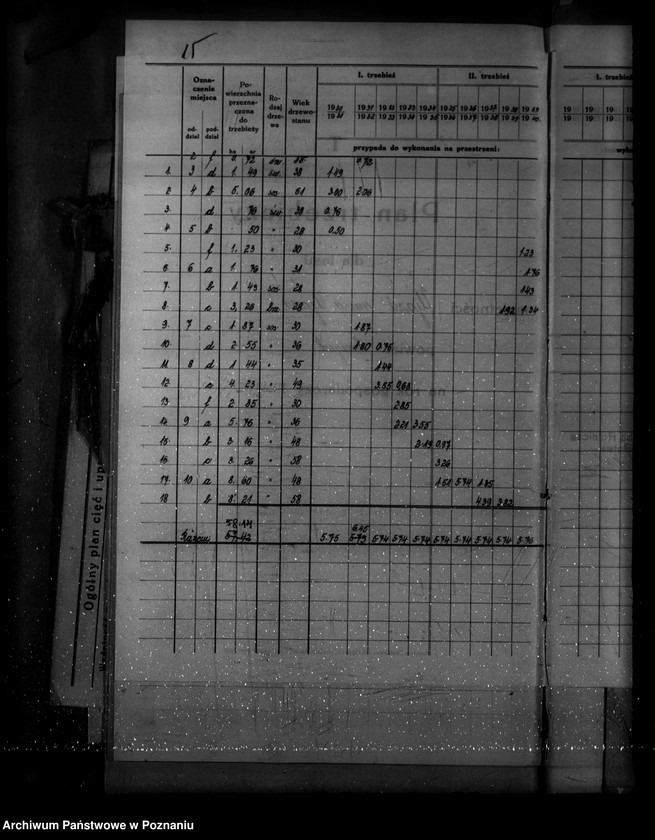 15
I. trzebież II. trzebież I. trzebież
Ozna-
czenie
miejsca
od-
dział
pod-
dział
Po-
wierzchnia
przezna-
czona
do
trzebieży
ha
Ro-
dzaj
drze-
wa
Wiek
drzewo-
stanu
1930 1931 1932 1933 1934 1935 1936 1937 1938 1939
1931 1932 1933 1934 1935 1936 1937 1938 1939 1940
19 19 19 19
19 19 19 19
przypada do wykonania na przestrzeni:
2 f 0. 72 0.72
1. 3 d 1. 49 38 1.49
2. 4 b 5. 06 61 3.00 2.06
3. d 76 38 0.76
4. 5 b 50 " 28 0.50
5. f 1. 23 " 30 1.23
6. 6 a 1. 76 " 31 1.76
7. b 1. 43 28 1.43
8. c 3. 26 28 1.92 1.34
9. 7 c 1. 87 30 1.87
10. d 2. 55 " 36 1.80 0.75
11. 8 d 1. 44 " 35 1.44
12. c 4. 23 " 49 3.55 0.68
13. f 2. 85 " 30 2.85
14. 9 a 5. 76 " 36 2.21 3.55
15. b 3. 16 " 48 2.19 0.97
16. c 3. 26 " 38 3.26
17. 10 a 8. 60 " 48 1.51 5.74 1.35
18 b 8. 21 " 58 4.39 3.82
58.14 6.45
Razem 57.42 5.75 5.73 5.74 5.74 5.74 5.74 5.74 5.74 5.74 5.76
Ogólny plan cięć i up
Archiwum Państwowe w Poznaniu